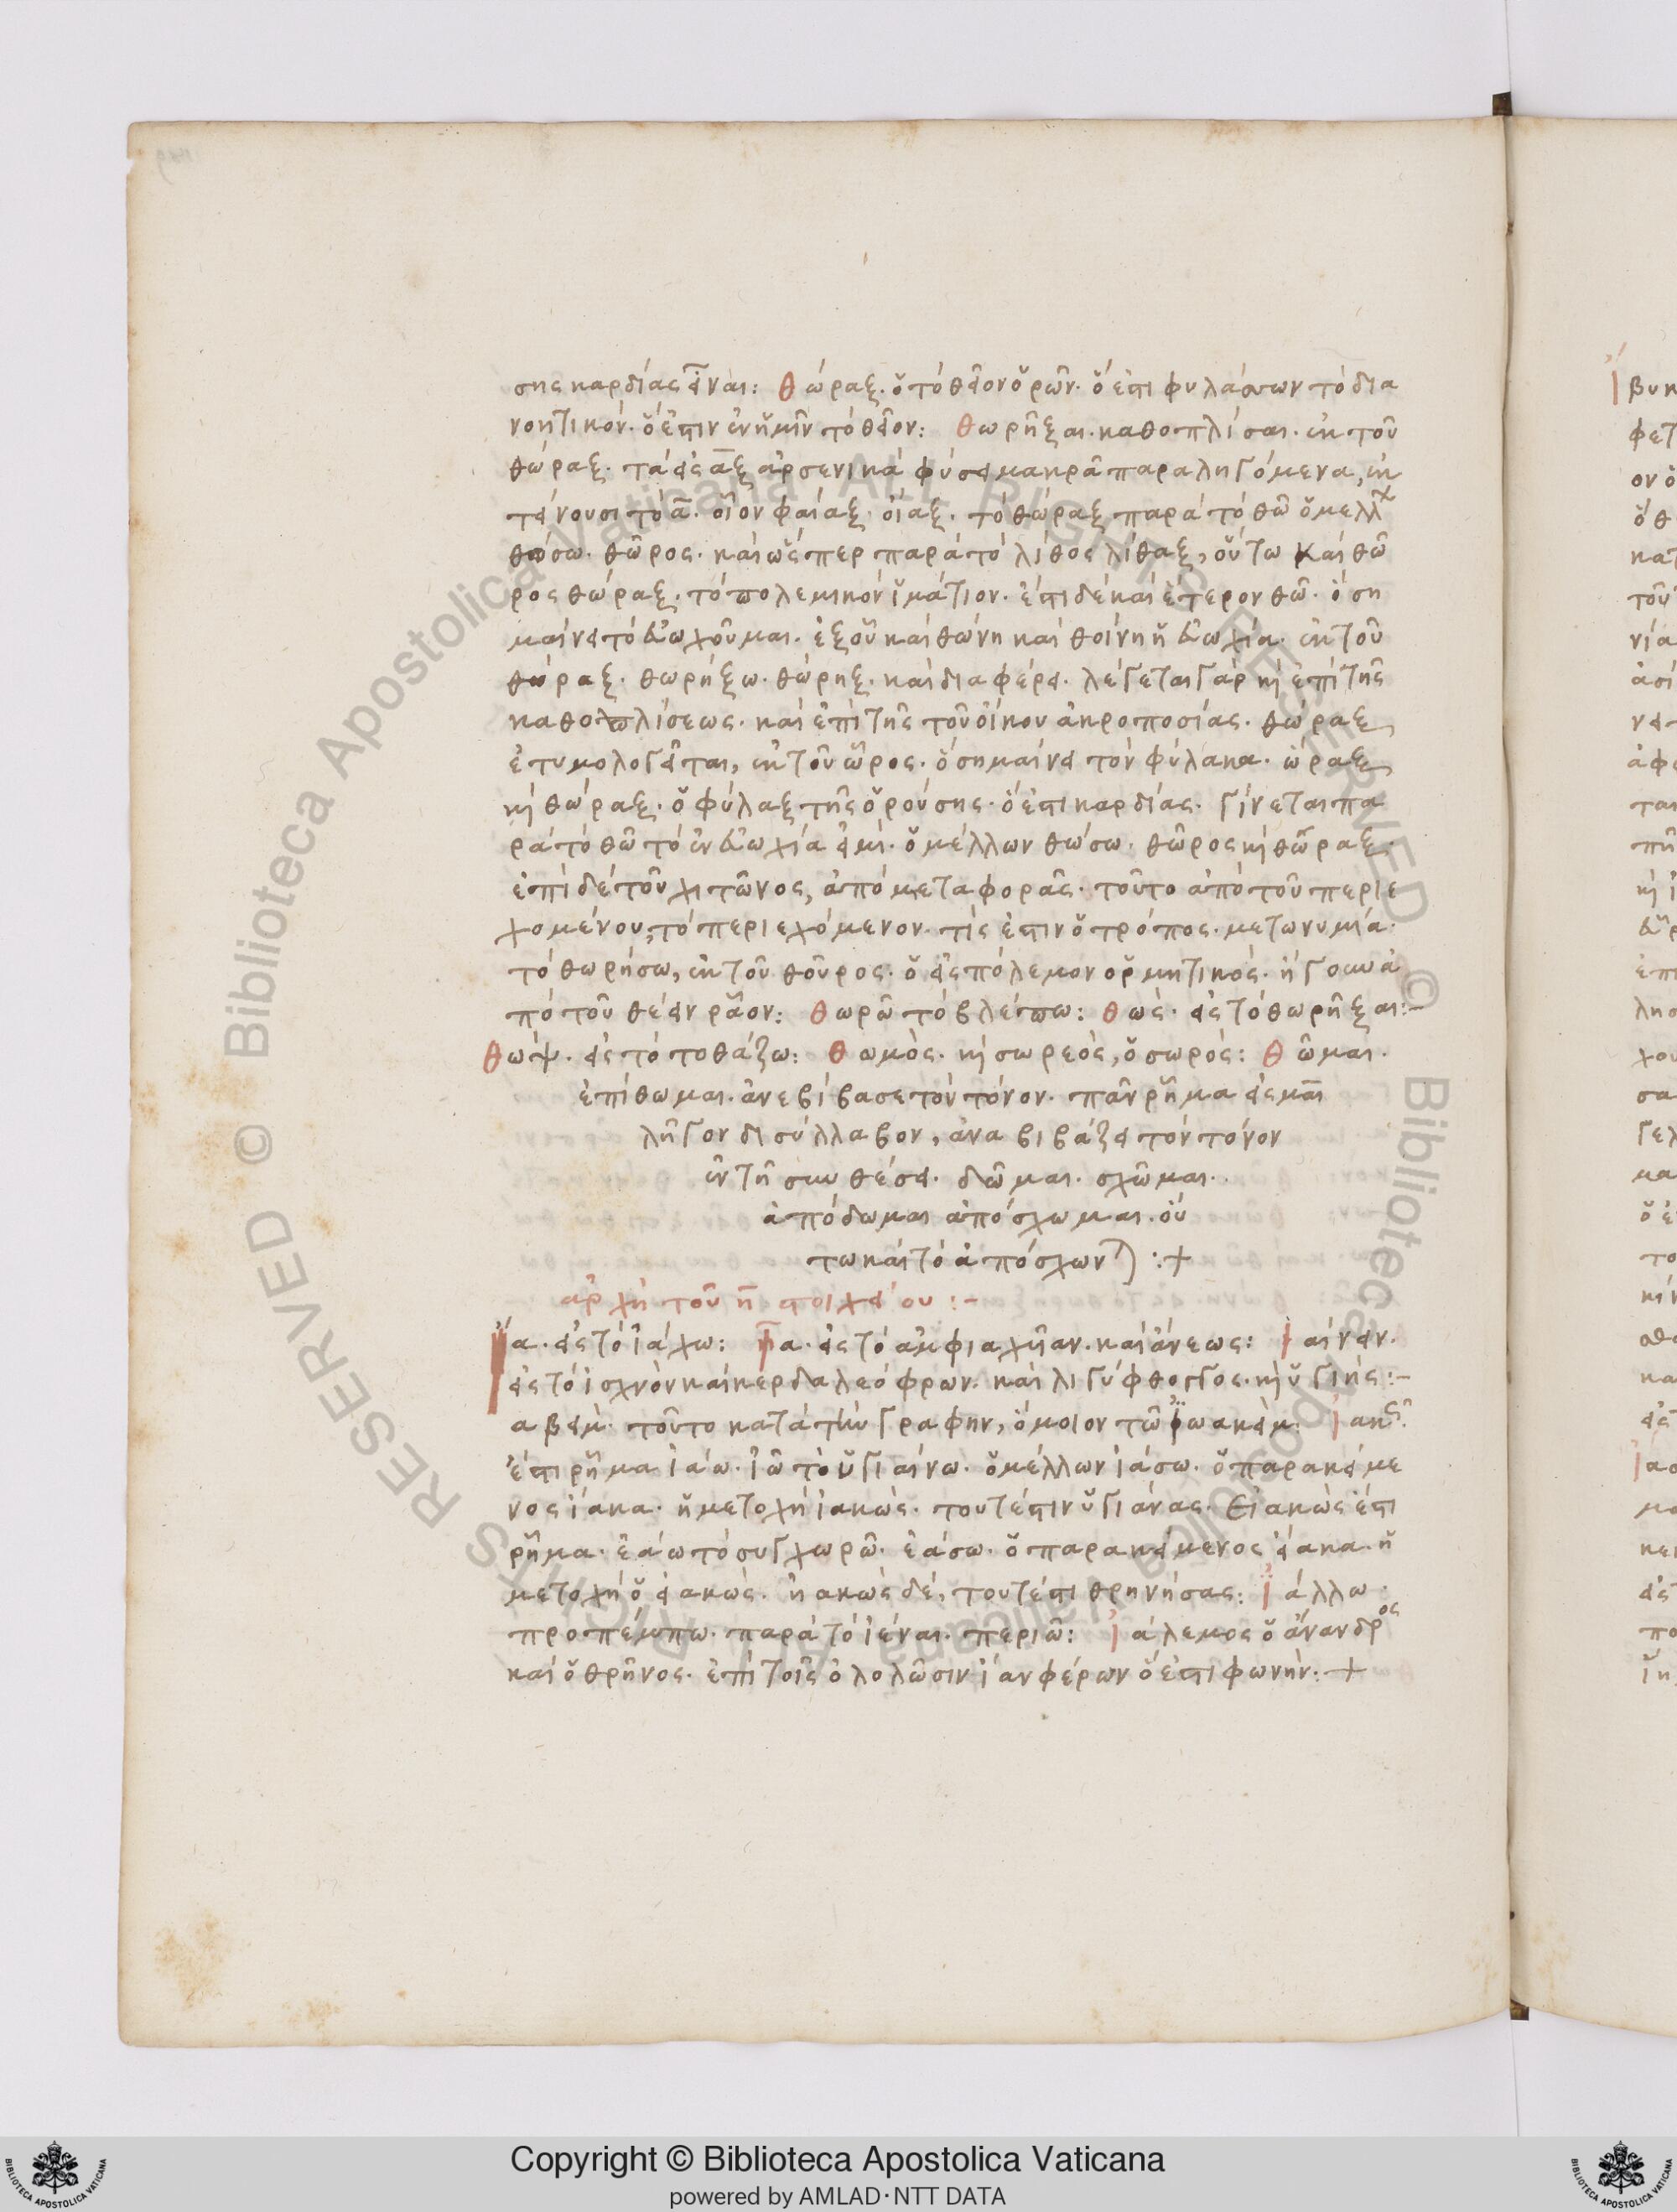 σης καρδίας εἶναι: Θώραξ. ὁ τὸ θεῖον ὁρῶν. ὅ ἐστι φυλάττων τὸ δια
νοητικόν. ὅ ἐστιν ἐν ἡμῖν τὸ θεῖον: Θωρῆξαι. καθοπλίσαι. ἐκ τοῦ
θώραξ. τὰ εἰς ᾱξ ἀρσενικὰ φύσει μακρᾶ παραληγόμενα, ἐκ
τείνουσι τὸ ᾱ. οἷον φαίαξ. οἴαξ. τὸ θώραξ παρὰ τὸ θῶ ὁ μέλλ
θώσω. θῶρος. καὶ ὥσπερ παρὰ τὸ λίθος λίθαξ, οὕτω καὶ θῶ
ρος θώραξ. τὸ πολεμικὸν ἱμάτιον. ἔστι δὲ καὶ ἕτερον θῶ. ὁ ση
μαίνει τὸ εὐωχοῦμαι. ἐξ οὗ καὶ θώνη καὶ θοίνη ἡ εὐωχία. ἐκ τοῦ
θώραξ. θωρήξω. θώρηξ. καὶ διαφέρει. λέγεται γὰρ κὶ ἐπὶ τῆς
καθοπλίσεως. καὶ ἐπὶ τῆς τοῦ οἴνου ἀκροποσίας. θώραξ
ἐτυμολογεῖται, ἐκ τοῦ ὦρος. ὁ σημαίνει τὸν φύλακα. ὤραξ
κὶ θώραξ. ὁ φύλαξ τῆς ὁρούσης. ὅ ἐστι καρδίας. γίνεται πα
ρὰ τὸ θῶ τὸ ἐν εὐωχία εἰμί. ὁ μέλλων θώσω. θῶρος κὶ θῶραξ.
ἐπὶ δὲ τοῦ χιτῶνος, ἀπὸ μεταφορᾶς. τοῦτο ἀπὸ τοῦ περιε
χομένου, τὸ περιεχόμενον. τίς ἐστιν ὁ τρόπος. μετωνυμία.
τὸ θωρήσω, ἐκ τοῦ θοῦρος. ὁ εἰς πόλεμον ὁρμητικός. ἢ γουν ἀ
πὸ τοῦ θέειν ρᾶον: Θωρῶ τὸ βλέπω: Θώς. εἰς τὸ θωρῆξαι:–
Θώψ. εἰς τὸ τοθάζω: Θωμὸς. κὶ σωρεός, ὁ σωρός: Θῶμαι.
ἐπίθωμαι. ἀνεβίβασε τὸν τόνον. πᾶν ρῆμα εἰς μαι
λῆγον δισύλλαβον, ἀναβιβάζει τὸν τόνον
ἐν τῆ συνθέσει. δῶμαι. σχῶμαι.
ἀπόδωμαι ἀπόσχωμαι. οὕ
τω καὶ τὸ ἀπόσχων) :+
ἀρχὴ τοῦ ῆ στοιχείου :–
Ἴα. εἰς τὸ ἰάχω: Ἴα. εἰς τὸ ἀμφιαχῆαν. καὶ ἄνεως: Ἰαίνειν.
εἰς τὸ ἰσχνὸν καὶ κερδαλεόφρων. καὶ λιγύφθογγος. κὶ ὑγιής:–
αβεὶμ. τοῦτο κατὰ τὴν γραφην, ὅμοιον τῶ ἰωακείμ: Ἰακ
ἔστι ρῆμα ἰάω. ἰῶ τὸ ὑγιαίνω. ὁ μέλλων ἰάσω. ὁ παρακείμε
νος ἴακα. ἡ μετοχὴ ἰακώς. τουτέστιν ὑγιάνας. Εἰακὼς ἔστι
ρῆμα. ἐάω τὸ συγχωρῶ. ἐάσω. ὁ παρακείμενος εἴακα. ἡ
μετοχὴ ὁ εἰακώς. ἠακὼς δέ, τουτέστι θρηνήσας: Ἰάλλω.
προπέμπω. παρὰ τὸ ἰέναι. περιῶ: Ἰάλεμος ὁ ἄνανδρος
καὶ ὁ θρῆνος. ἐπὶ τοῖς ὀλολῶσιν ἰὰν φέρων ὅ ἐστι φωνήν. +
Copyright © Biblioteca Apostolica Vaticana
powered by AMLAD·NTT DATA